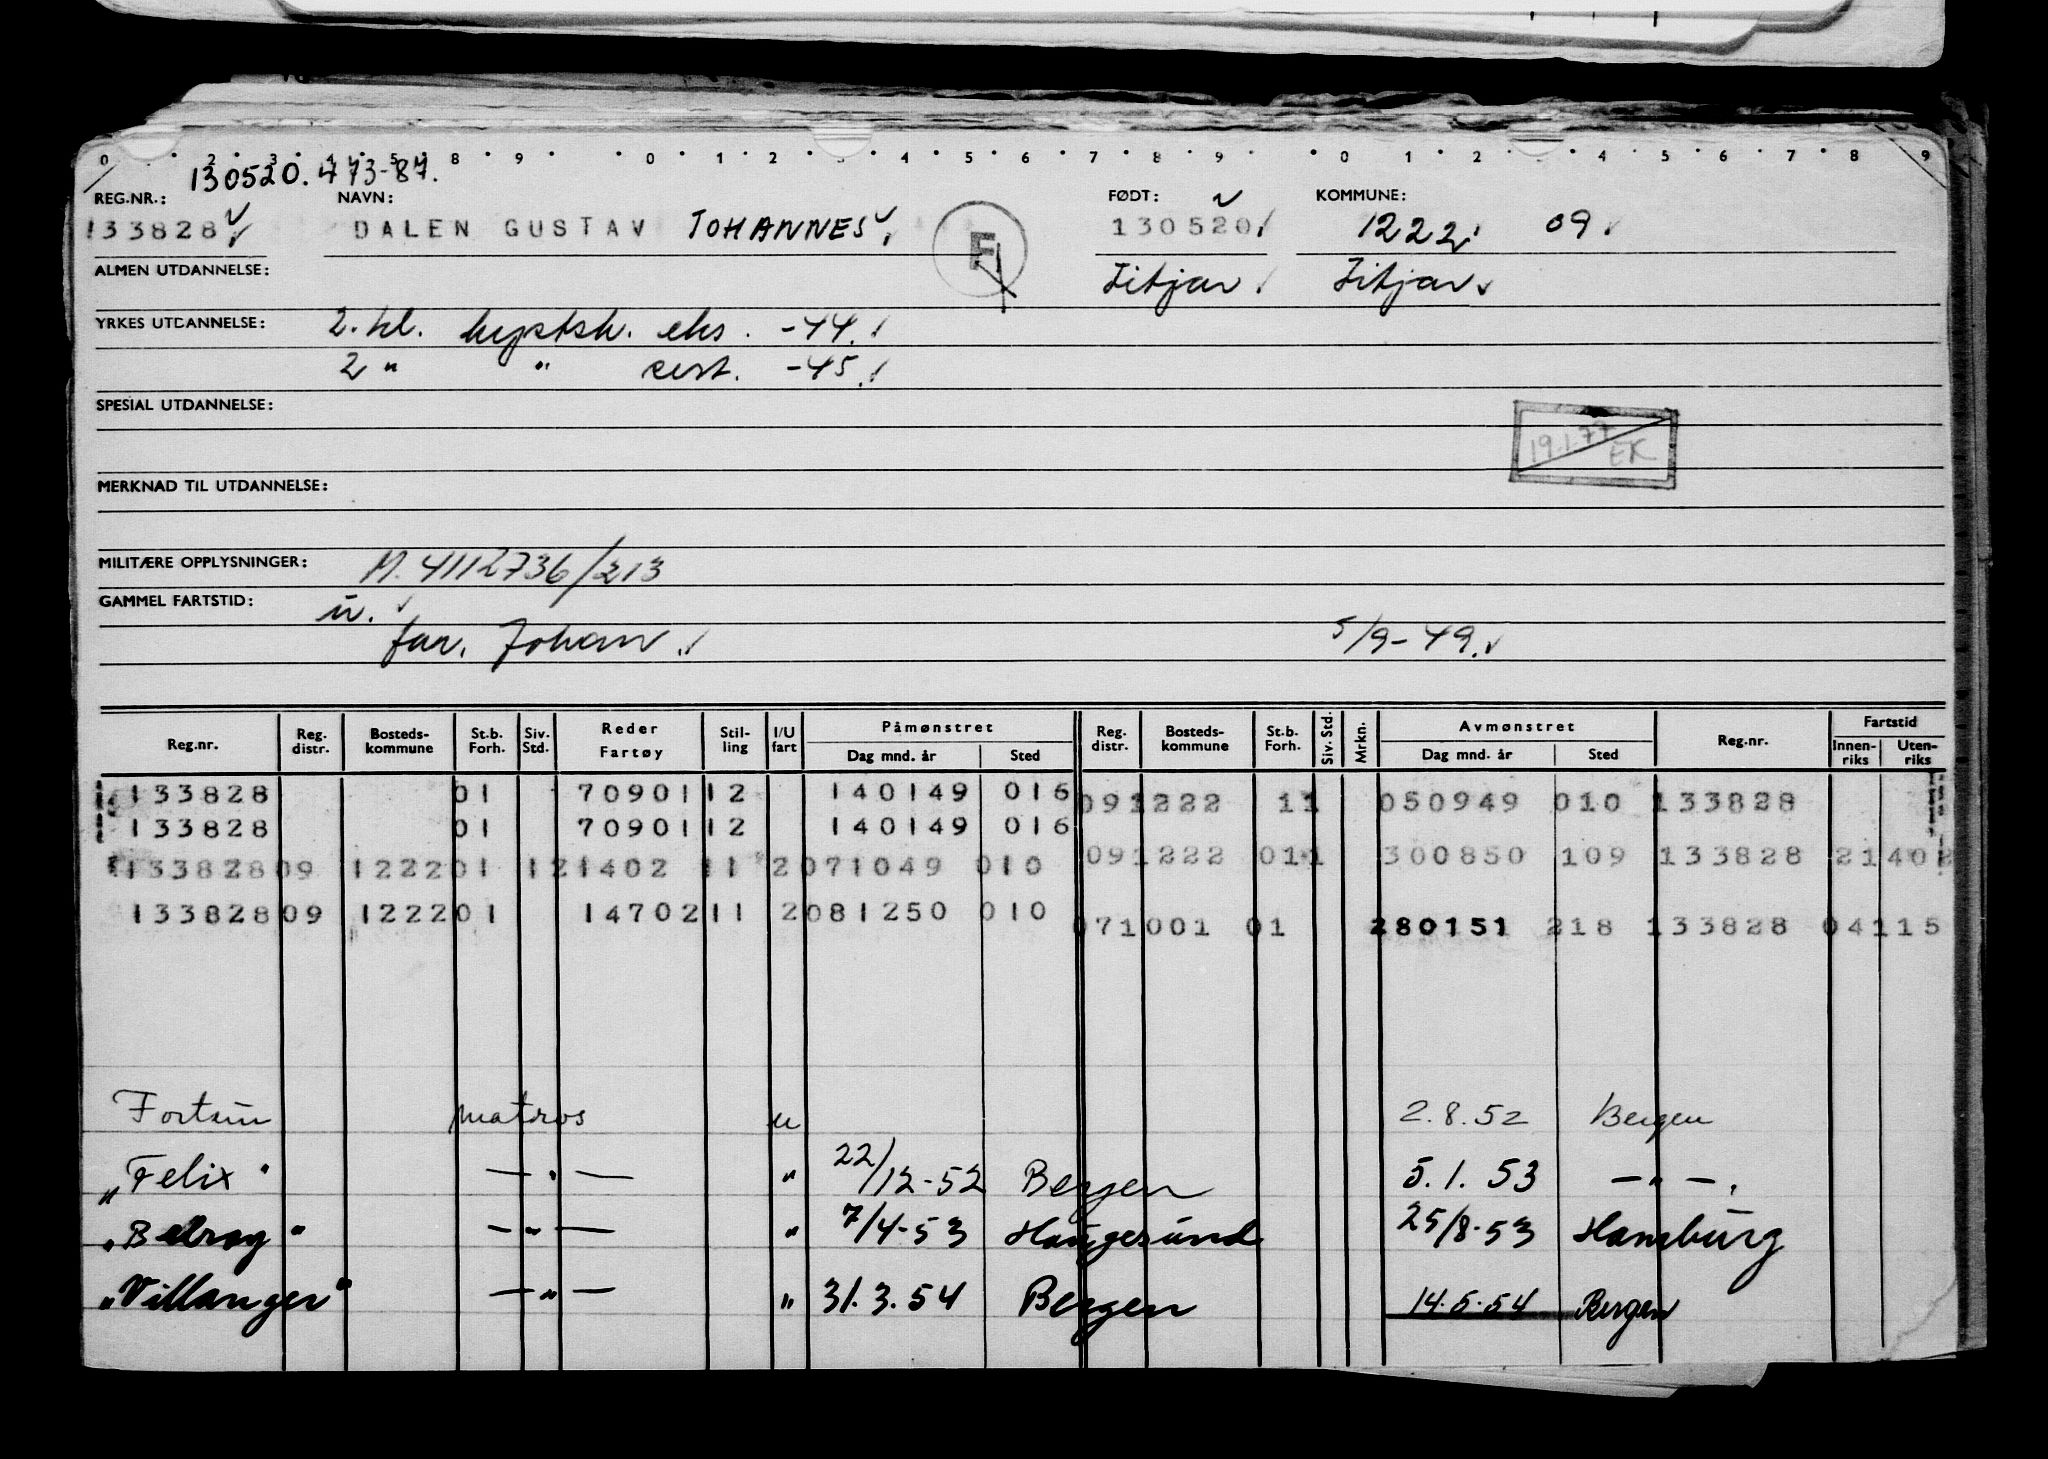 0 . 2 . 3 . 4 . 5 . 8 . 9 . . 0 . 1 . 2 . 3 . 4 . 5 . 6 . 7 . 8 . 9 . . 0 . 1 . 2 . . 4 . 5 . 6 . 7 . 8 . 9
130520. 473-87.
REG.NR.: NAVN: FØDT: KOMMUNE:
133828 DALEN GUSTAV JOHANNES F 130520 1222 09
ALMEN UTDANNELSE: Fitjar Fitjar
YRKES UTDANNELSE: 2. kl. kystsk. eks. -44.
2 " " cert. -45.
SPESIAL UTDANNELSE:
19.1.77 EK
MERKNAD TIL UTDANNELSE:
MILITÆRE OPPLYSNINGER: M. 4112736/213
GAMMEL FARTSTID: u.
far. Johan 5/9-49.
Reg.nr. Reg. distr. Bosteds-kommune St.b. Forh. Siv. Std. Reder Fartøy Stil-ling I/U fart Påmønstret Dag mnd. år Sted Reg. distr. Bosteds-kommune St.b. Forh. Siv. Std. Mrkn. Avmønstret Dag mnd. år Sted Reg.nr. Fartstid Innen-riks Uten-riks
133828 01 70901 12 140149 016 091222 11 050949 010 133828
133828 01 70901 12 140149 016
133828 09 1222 01 1 21402 11 2 071049 010 091222 011 300850 109 133828 21402
133828 09 1222 01 14702 11 2 081250 010 071001 01 280151 218 133828 04115
matros u 2.8.52 Bergen
"Felix" — " — " 22/12-52 Bergen 5.1.53 — " — .
— " — " 7/4-53 Haugesund 25/8-53 Hamburg
"Villanger" — " — " 31.3.54 Bergen 14.5.54 Bergen